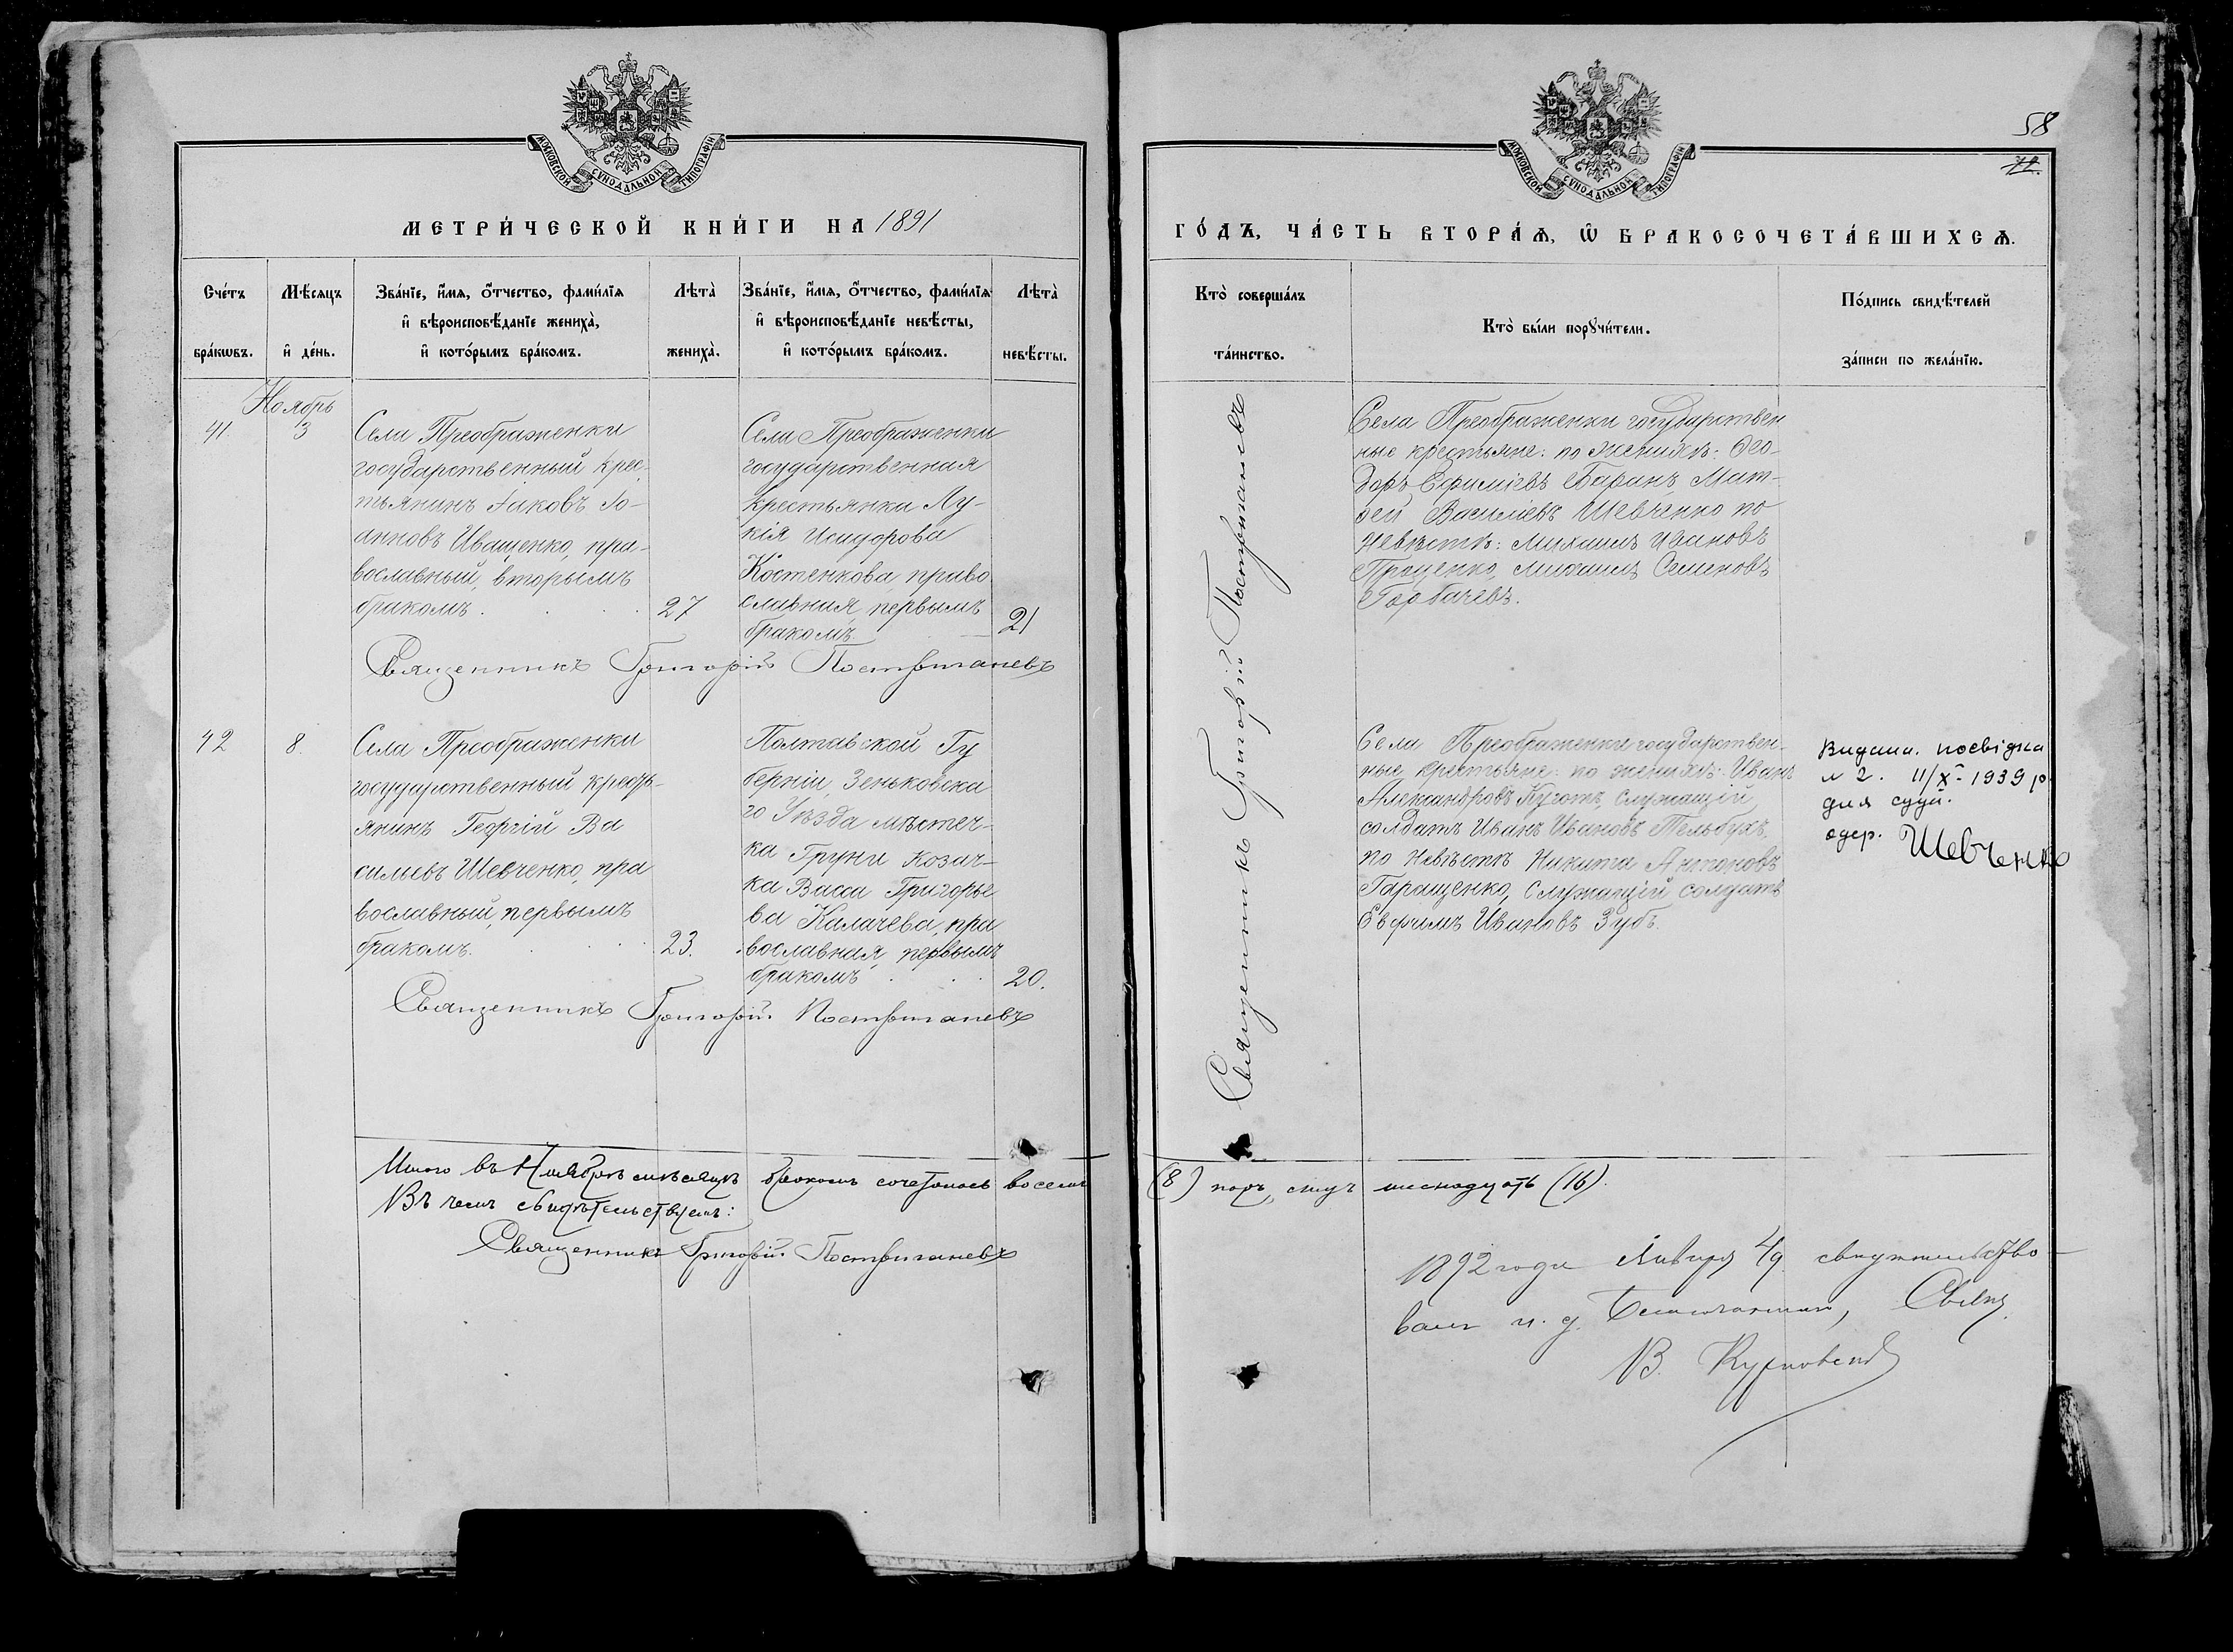 МОСКОВСКОЙ СѴНОДАЛЬНОЙ ТИПОГРАФІИ
МЕТРИ́ЧЕСКОЙ КНИ́ГИ НА 1891
Сче́тъ бра́кѡвъ.
Мѣ́сяцъ и҆ де́нь.
Зва́нїе, и҆́мя, ѻ҆́тчество, фами́лїя
и҆ вѣроисповѣ́данїе жениха̀,
и҆ кото́рымъ бра́комъ.
Лѣта̀ жениха̀.
Зва́нїе, и҆́мя, ѻ҆́тчество, фами́лїя
и҆ вѣроисповѣ́данїе невѣ́сты,
и҆ кото́рымъ бра́комъ.
Лѣта̀ невѣ́сты.
Ноябрь
41.
3
Села Преображенки
государственный крес-
тьянинъ Іаковъ Іо-
анновъ Иващенко, пра-
вославный, вторымъ
бракомъ.
27
Села Преображенки
государственная
крестьянка Лу-
кія Исидорова
Костенкова, право
славная, первымъ
бракомъ.
21
Священникъ Григорій Постриганевъ
42
8.
Села Преображенки
государственный кресть-
янинъ Георгій Ва
сильевъ Шевченко, пра
вославный, первымъ
бракомъ.
23.
Полтавской Гу
берніи, Зеньковска
го Уѣзда мѣстеч-
ка Груни Козач-
ка Васса Григорье
ва Калачева, пра
вославная, первымъ
бракомъ
20.
Священникъ Григорій Постриганевъ
Итого въ Ноябрѣ мѣсяцѣ бракомъ сочеталось восемь
Въ чемъ свидѣтельствуемъ:
Священникъ Григорій Постриганевъ
58
МОСКОВСКОЙ СѴНОДАЛЬНОЙ ТИПОГРАФІИ
ГО́ДЪ, ЧА́СТЬ ВТОРА́Ѧ, Ѽ БРАКОСОЧЕТА́ВШИХСѦ.
Кто̀ соверша́лъ
та́инство.
Кто̀ бы́ли порꙋчи́тели.
По́дпись свидѣ́телей
за́писи по жела́нїю.
Священникъ Григорій Постриганевъ
Села Преображенки государствен
ные крестьяне: по женихѣ: Ѳео-
доръ Ефиміевъ Баранъ, Мат-
ѳей Василіевъ Шевченко по
невѣстѣ: Михаилъ Ивановъ
Проценко, Михаилъ Семеновъ
Горбачевъ.
Села Преображенки государствен-
ные крестьяне: по женихѣ: Иванъ
Александровъ служащій
солдатъ Иванъ Ивановъ Тельбухъ.
по невѣстѣ Никита Антоновъ
Гаращенко, служащій солдатъ
Евфимъ Ивановъ Зубъ.
Видана. посвідка
№ 2. 11/X-1939 р.
для
одер. Шевченко
(8) паръ, лицъ шеснадцать (16).
1892 года Января 4/9 свидѣтельство-
валъ и. д. Благочиннаго, Свящ.
В.